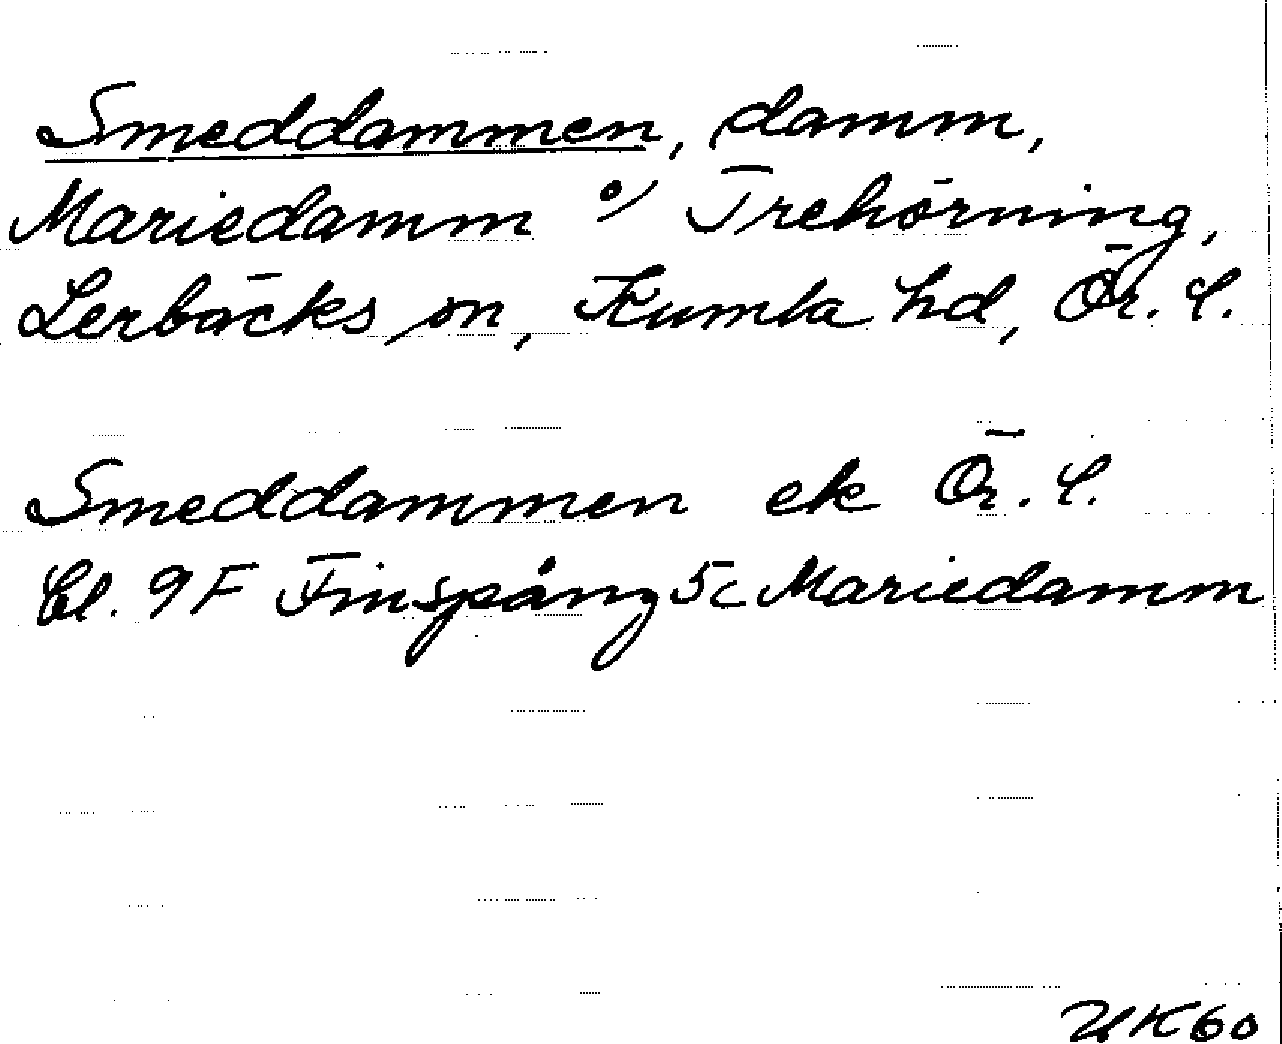 Smeddammen, damm,
Mariedamm o/ Trehörning,
Lerbäcks sn, Kumla hd, Ör. l.
Smeddammen ek Ör. l.
Bl. 9F Finspång 5c Mariedamm
UK60